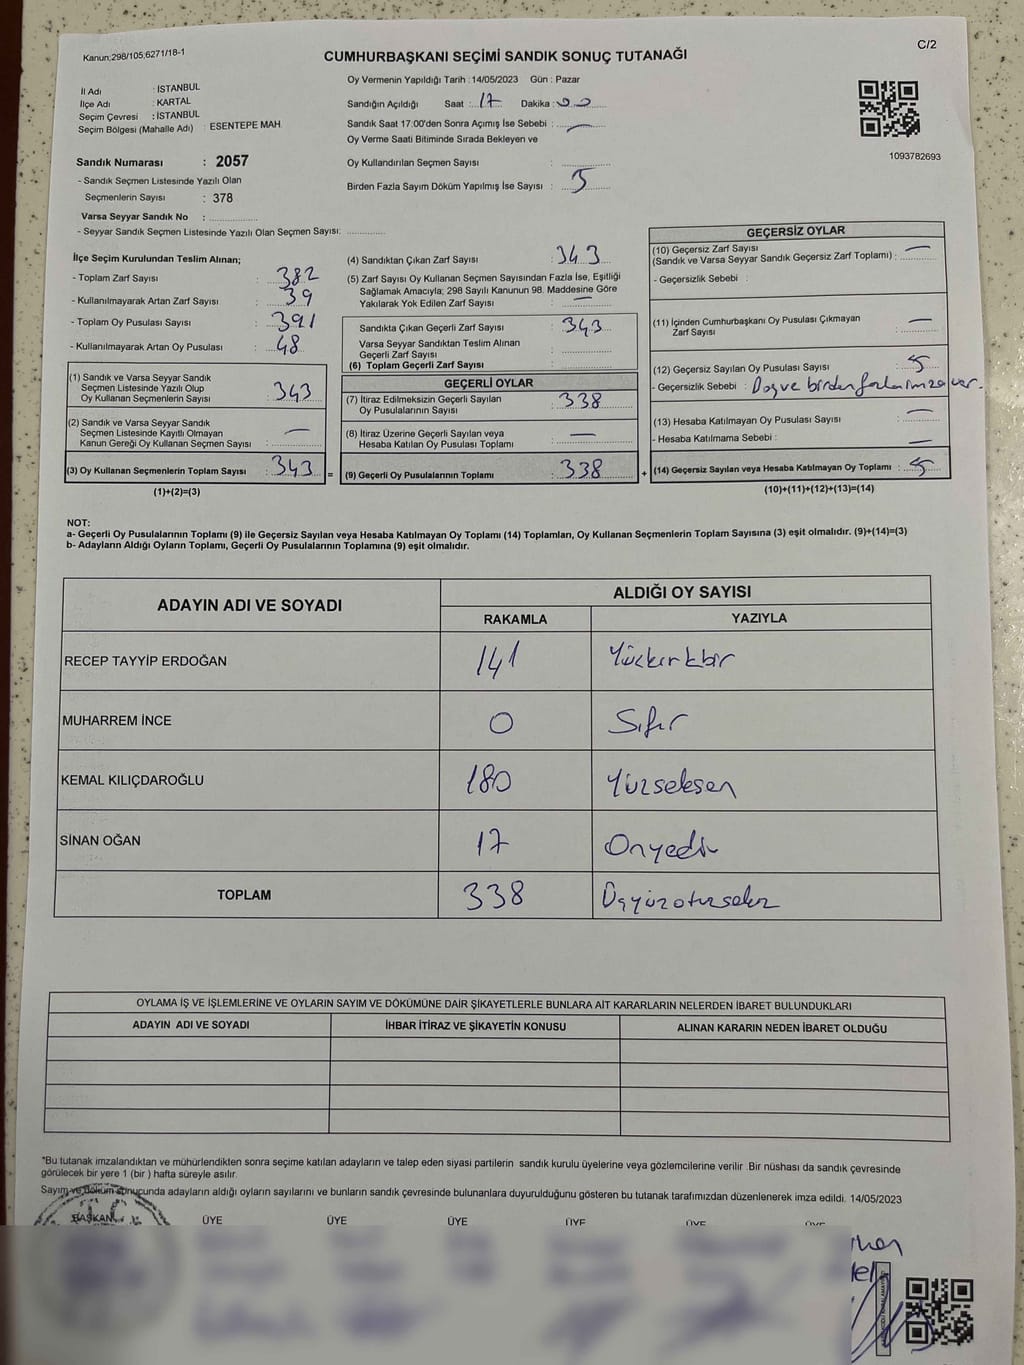 Kanun;298/105;6271/18-1
C/2
CUMHURBAŞKANI SEÇİMİ SANDIK SONUÇ TUTANAĞI
İl Adı : İSTANBUL
İlçe Adı : KARTAL
Seçim Çevresi : İSTANBUL
Seçim Bölgesi (Mahalle Adı) : ESENTEPE MAH.
Sandık Numarası : 2057
- Sandık Seçmen Listesinde Yazılı Olan
Seçmenlerin Sayısı : 378
Varsa Seyyar Sandık No :
- Seyyar Sandık Seçmen Listesinde Yazılı Olan Seçmen Sayısı:
Oy Vermenin Yapıldığı Tarih :14/05/2023 Gün : Pazar
Sandığın Açıldığı Saat : 17 Dakika : 00
Sandık Saat 17.00'den Sonra Açımış İse Sebebi : —
Oy Verme Saati Bitiminde Sırada Bekleyen ve
Oy Kullandırılan Seçmen Sayısı :
Birden Fazla Sayım Döküm Yapılmış İse Sayısı : 5
1093782693
İlçe Seçim Kurulundan Teslim Alınan;
- Toplam Zarf Sayısı : 382
- Kullanılmayarak Artan Zarf Sayısı : 39
- Toplam Oy Pusulası Sayısı : 391
- Kullanılmayarak Artan Oy Pusulası : 48
(1) Sandık ve Varsa Seyyar Sandık
Seçmen Listesinde Yazılı Olup
Oy Kullanan Seçmenlerin Sayısı : 343
(2) Sandık ve Varsa Seyyar Sandık
Seçmen Listesinde Kayıtlı Olmayan
Kanun Gereği Oy Kullanan Seçmen Sayısı : —
(3) Oy Kullanan Seçmenlerin Toplam Sayısı : 343 =
(1)+(2)=(3)
(4) Sandıktan Çıkan Zarf Sayısı : 343
(5) Zarf Sayısı Oy Kullanan Seçmen Sayısından Fazla İse, Eşitliği
Sağlamak Amacıyla; 298 Sayılı Kanunun 98. Maddesine Göre
Yakılarak Yok Edilen Zarf Sayısı : —
Sandıkta Çıkan Geçerli Zarf Sayısı : 343
Varsa Seyyar Sandıktan Teslim Alınan
Geçerli Zarf Sayısı :
(6) Toplam Geçerli Zarf Sayısı
GEÇERLİ OYLAR
(7) İtiraz Edilmeksizin Geçerli Sayılan
Oy Pusulalarının Sayısı : 338
(8) İtiraz Üzerine Geçerli Sayılan veya
Hesaba Katılan Oy Pusulası Toplamı : —
(9) Geçerli Oy Pusulalarının Toplamı : 338 +
GEÇERSİZ OYLAR
(10) Geçersiz Zarf Sayısı
(Sandık ve Varsa Seyyar Sandık Geçersiz Zarf Toplamı) : —
- Geçersizlik Sebebi :
(11) İçinden Cumhurbaşkanı Oy Pusulası Çıkmayan
Zarf Sayısı : —
(12) Geçersiz Sayılan Oy Pusulası Sayısı : 5
- Geçersizlik Sebebi : Boş ve birden fazla imza var.
(13) Hesaba Katılmayan Oy Pusulası Sayısı : —
- Hesaba Katılmama Sebebi : —
(14) Geçersiz Sayılan veya Hesaba Katılmayan Oy Toplamı : 5
(10)+(11)+(12)+(13)=(14)
NOT:
a- Geçerli Oy Pusulalarının Toplamı (9) ile Geçersiz Sayılan veya Hesaba Katılmayan Oy Toplamı (14) Toplamları, Oy Kullanan Seçmenlerin Toplam Sayısına (3) eşit olmalıdır. (9)+(14)=(3)
b- Adayların Aldığı Oyların Toplamı, Geçerli Oy Pusulalarının Toplamına (9) eşit olmalıdır.
ADAYIN ADI VE SOYADI ALDIĞI OY SAYISI
RAKAMLA YAZIYLA
RECEP TAYYİP ERDOĞAN 141 Yüzkırkbir
MUHARREM İNCE 0 Sıfır
KEMAL KILIÇDAROĞLU 180 Yüzseksen
SİNAN OĞAN 17 Onyedi
TOPLAM 338 Üçyüzotuzsekiz
OYLAMA İŞ VE İŞLEMLERİNE VE OYLARIN SAYIM VE DÖKÜMÜNE DAİR ŞİKAYETLERLE BUNLARA AİT KARARLARIN NELERDEN İBARET BULUNDUKLARI
ADAYIN ADI VE SOYADI İHBAR İTİRAZ VE ŞİKAYETİN KONUSU ALINAN KARARIN NEDEN İBARET OLDUĞU
*Bu tutanak imzalandıktan ve mühürlendikten sonra seçime katılan adayların ve talep eden siyasi partilerin sandık kurulu üyelerine veya gözlemcilerine verilir .Bir nüshası da sandık çevresinde
görülecek bir yere 1 (bir ) hafta süreyle asılır.
Sayım ve döküm sonucunda adayların aldığı oyların sayılarını ve bunların sandık çevresinde bulunanlara duyurulduğunu gösteren bu tutanak tarafımızdan düzenlenerek imza edildi. 14/05/2023
BAŞKAN ÜYE ÜYE ÜYE ÜYE ÜYE ÜYE